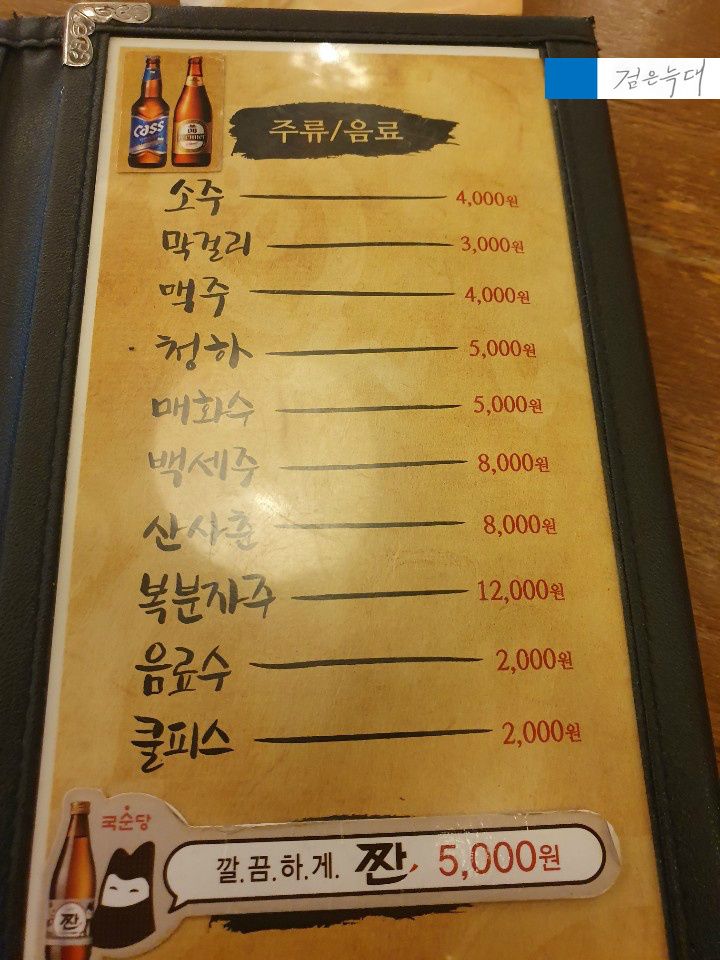 검은늑대
cass
주류/음료
소주 4,000원
막걸리 3,000원
맥주 4,000원
청하 5,000원
매화수 5,000원
백세주 8,000원
산사춘 8,000원
복분자주 12,000원
음료수 2,000원
쿨피스 2,000원
국순당
깔.끔.하.게. 짠, 5,000원
짠